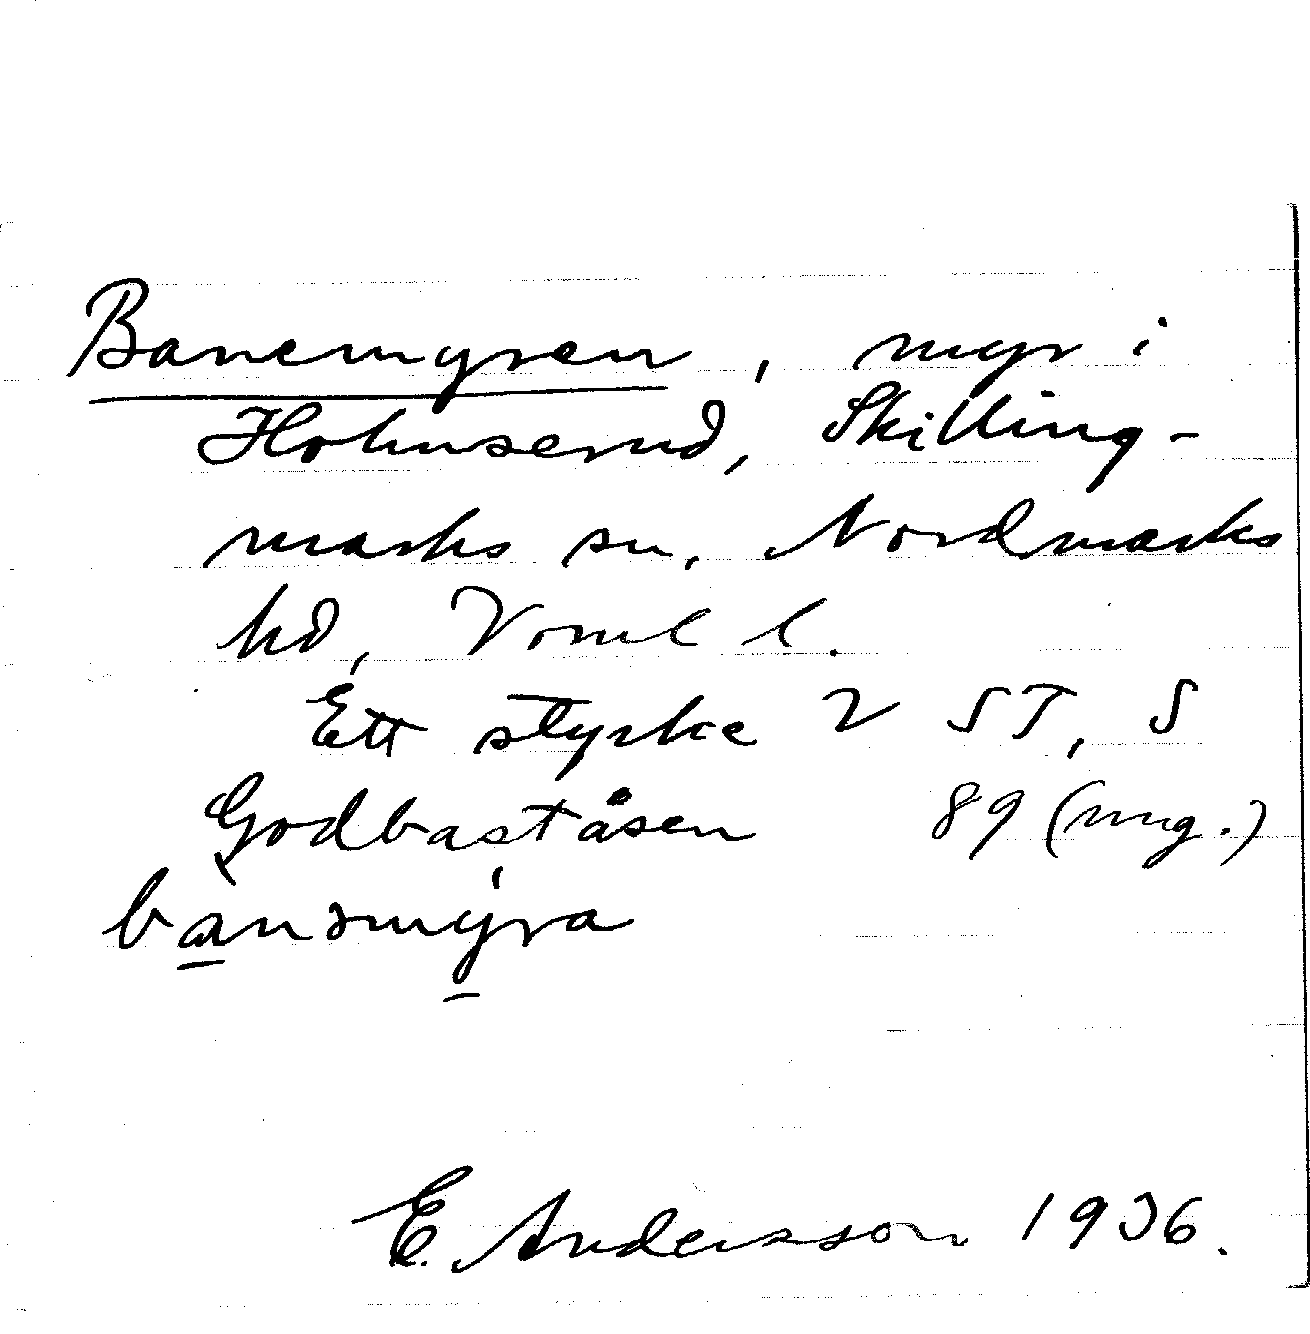 Banemyren, myr i
Holmserud, Skilling-
marks sn, Nordmarks
hd, Vrml l.
Ett stycke V ST, S
Godbaståsen 89 (mg.)
banəmyra
E. Andersson 1936.